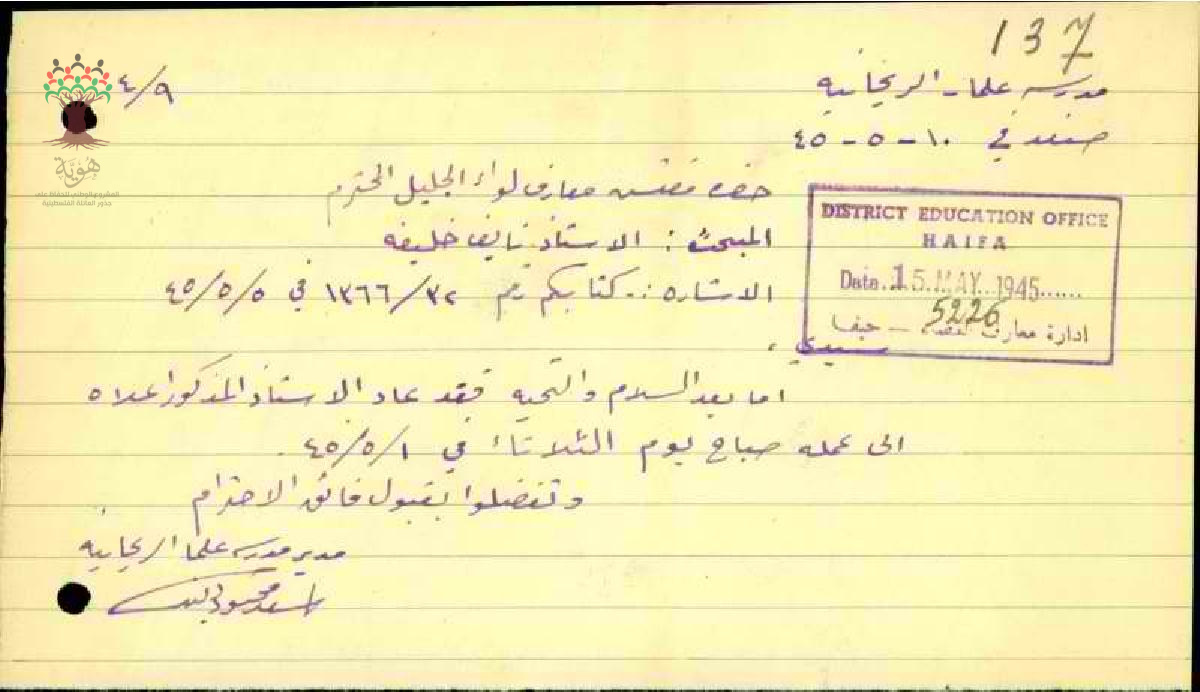 137
٤/٩
مدرسة علما - الريحانية
صفد في ١٠ - ٥ - ٤٥
حضرة مفتش معارف لواء الجليل المحترم
المبحث : الاستاذ نايف خليفه
الاشارة :- كتابكم رقم ١٣٦٦/٣٢ في ٤٥/٥/٥
DISTRICT EDUCATION OFFICE
HAIFA
Date. 15. MAY. 1945......
5226
ادارة معارف - حيفا
سيدي ،
اما بعد السلام والتحية فقد عاد الاستاذ المذكور اعلاه
الى عمله صباح يوم الثلاثاء في ٤٥/٥/١ .
وتفضلوا بقبول فائق الاحترام
مدير مدرسة علما الريحانية
هُوِيَّة
المشروع الوطني للحفاظ على
جذور العائلة الفلسطينية